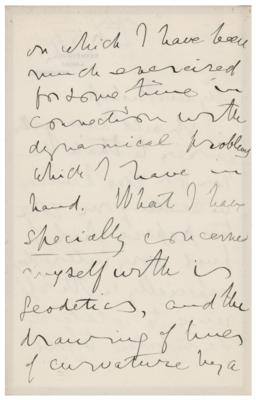 on which I have been
much exercised
for some time in
connection with
dynamical problems
which I have in
hand. What I have
specially concerned
myself with is
geodetics, and the
drawing of lines
of curvature by a